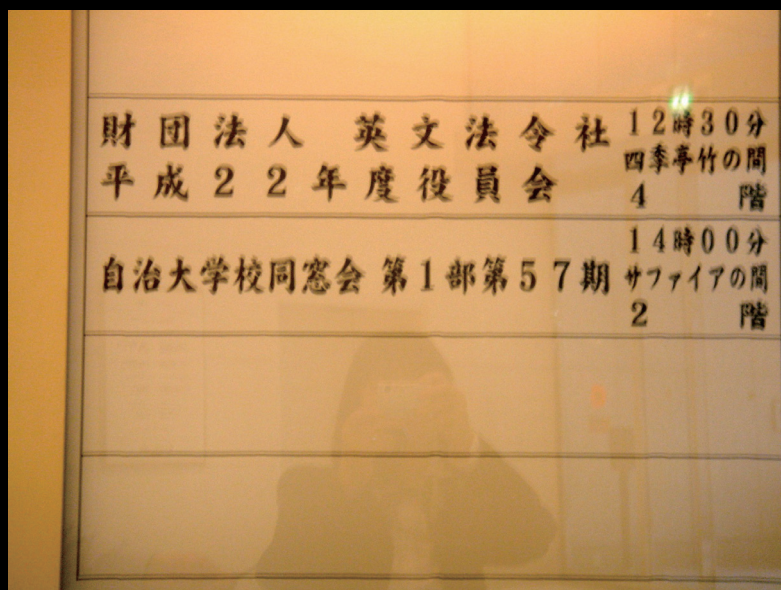 財団法人 英文法令社
平成22年度役員会
12時30分
四季亭竹の間
4 階
自治大学校同窓会 第1部第57期
14時00分
サファイアの間
2 階